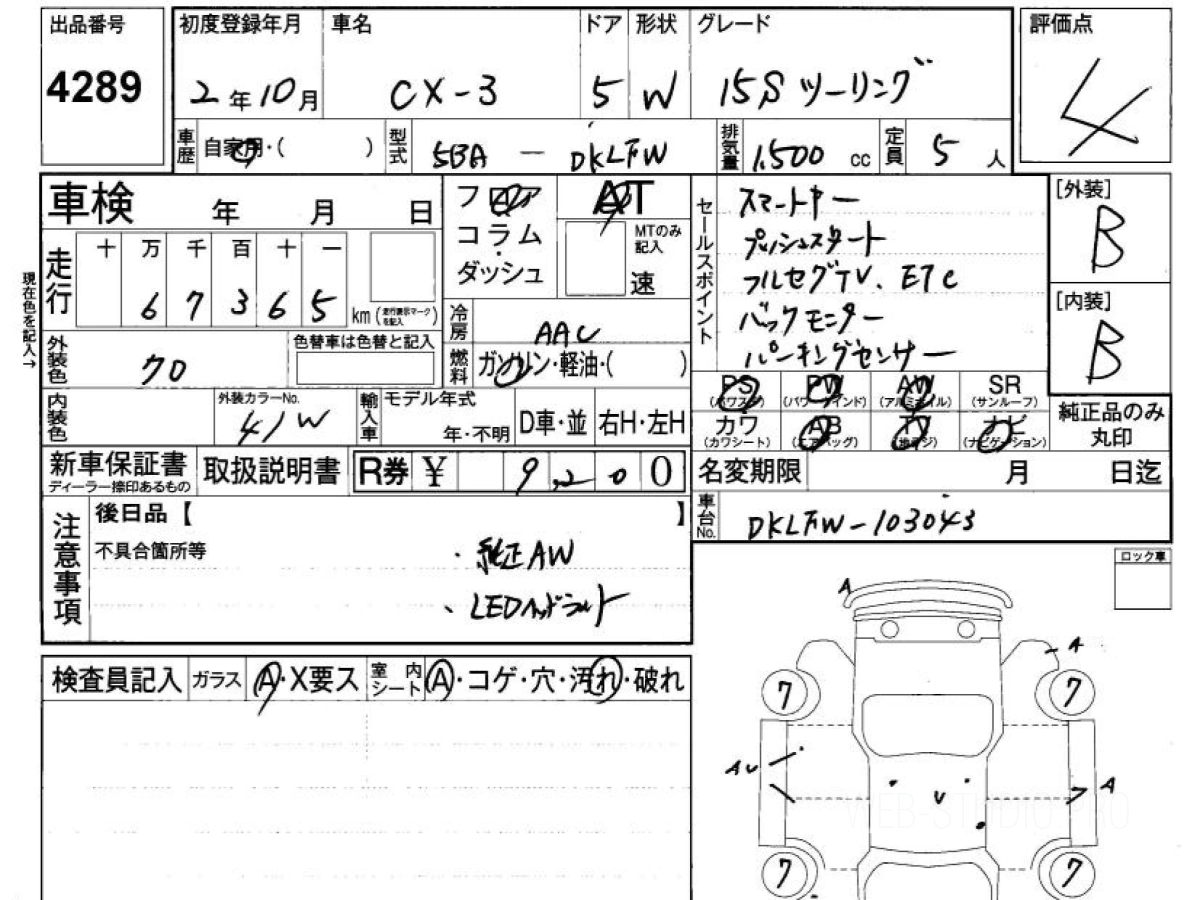 出品番号
4289
初度登録年月 車名 ドア 形状 グレード
2年10月 CX-3 5 W 15S ツーリング
評価点
4
車歴 自家用・( )
型式 5BA - DKLFW
排気量 1,500 cc
定員 5 人
車検 年 月 日
フロア
コラム
・
ダッシュ
AT
MTのみ記入
速
走行 十 万 千 百 十 一
6 7 3 6 5 km (走行表示マークを記入)
現在色を記入→
冷房 AAC
燃料 ガソリン・軽油・( )
外装色 クロ
色替車は色替と記入
内装色
外装カラーNo.
41W
輸入車
モデル年式
年・不明
D車・並
右H・左H
セールスポイント
スマートキー
プッシュスタート
フルセグTV、ETC
バックモニター
パーキングセンサー
[外装]
B
[内装]
B
PS PW AW SR
(パワステ) (パワーウインド) (アルミホイル) (サンルーフ)
カワ AB TV ナビ
(カワシート) (エアバッグ) (地デジ) (ナビゲーション)
純正品のみ
丸印
新車保証書
ディーラー捺印あるもの
取扱説明書
R券 ¥ 9,200
名変期限 月 日迄
車台No. DKLFW-103043
注意事項
後日品【 】
不具合箇所等
・純正AW
、LEDヘッドライト
ロック車
検査員記入 ガラス A・X要ス 室内シート A・コゲ・穴・汚れ・破れ
A
A
7 7
AU
U
A
WEB-STUDIO.PRO
7 7